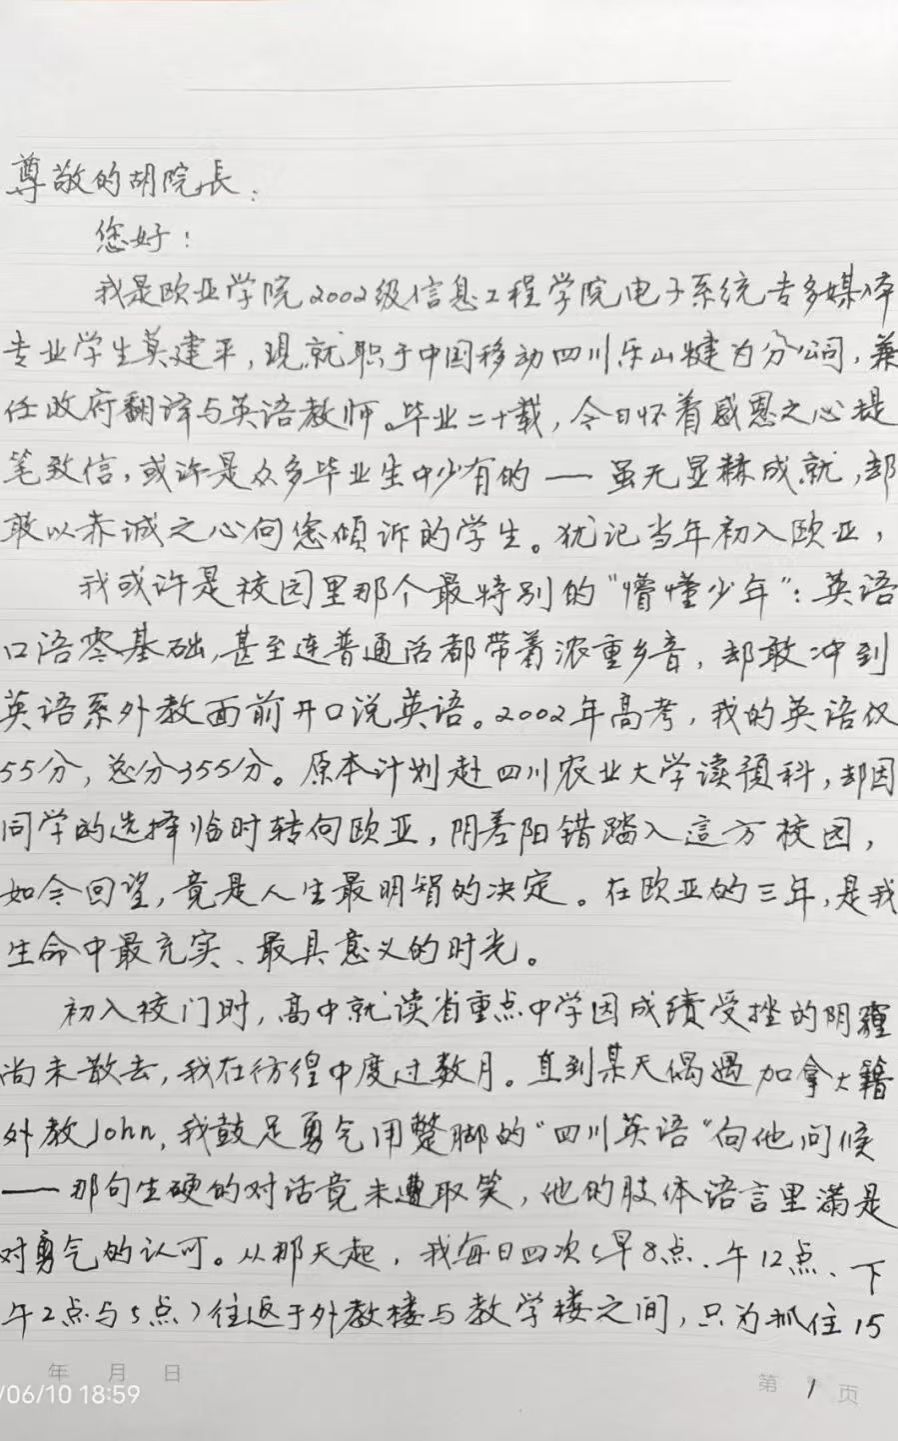 尊敬的胡院長：
您好！
我是欧亚学院2002级信息工程学院电子系统专多媒体
专业学生莫建平，现就职于中国移动四川乐山犍为分公司，兼
任政府翻译与英语教师。毕业二十载，今日怀着感恩之心提
笔致信，或许是众多毕业生中少有的——虽无显赫成就，却
敢以赤诚之心向您倾诉的学生。犹记当年初入欧亚，
我或许是校园里那个最特别的“懵懂少年”：英语
口语零基础，甚至连普通话都带着浓重乡音，却敢冲到
英语系外教面前开口说英语。2002年高考，我的英语仅
55分，总分355分。原本计划赴四川农业大学读预科，却因
同学的选择临时转向欧亚，阴差阳错踏入這方校园，
如今回望，竟是人生最明智的决定。在欧亚的三年，是我
生命中最充实、最具意义的时光。
初入校门时，高中就读省重点中学因成绩受挫的阴霾
尚未散去，我在彷徨中度过数月。直到某天偶遇加拿大籍
外教John，我鼓足勇气用蹩脚的“四川英语”向他问候
——那句生硬的对话竟未遭取笑，他的肢体语言里满是
对勇气的认可。从那天起，我每日四次（早8点、午12点、下
午2点与5点）往返于外教楼与教学楼之间，只为抓住15
年 月 日
/06/10 18:59
第 1 页